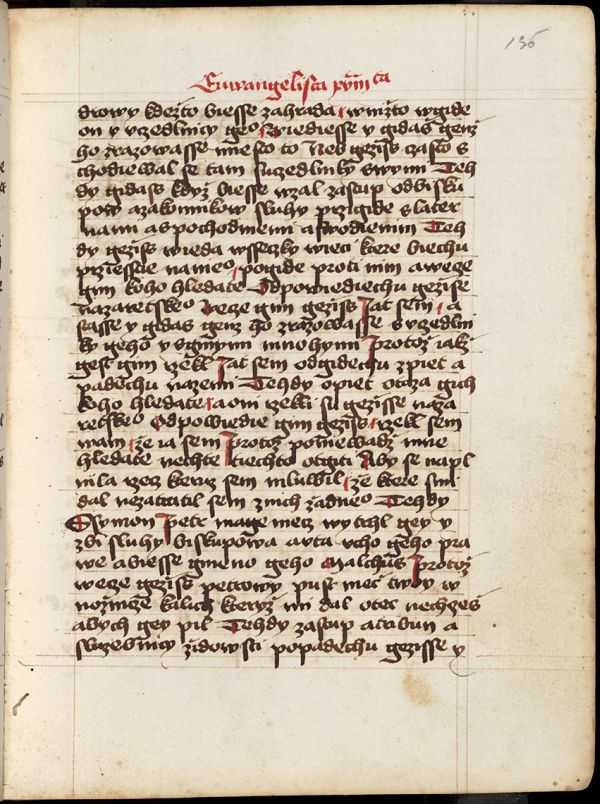 136
Euwangelista
drowy kdežto biesse zahrada, wnižto wgide
on y vczedlnicy geo Wiediesse y gidáš genž
ho zrazowasse miesto to Neb gezijs často s
chodiewal se tam s uczedlniky swymi Teh
dy gidass když biesse wzal zastup odbisku
pow a zakonnikow sluhy przigide s later
nami a s pochodniemi a s wodienim Teh
dy gezijs wieda wsseczky wieci ktere biechu
przissie nameo, pogide proti nim a wece
gim koho hledate Odpowiediechu gezisse
nazaretskeo Wece gim gezijs Jat sem, a
stasse y gidas genz ho zrazowasse s vczedlni
ky geho y s ginymi mnohymi Protož jakž
gest gim rzekl Jat sem odgidechu zpiet a
padechu nazemi Tehdy opiet otaza gich
koho hledate, a oni rzekli su gezisse naza
retskeo Odpowiedie gim gezijs, rzekl sem
wam, že ia sem Protož poniewadž mne
hledate nechte tiechto otgiti Aby se napl
nila rzecz kteruz sem mluwil, že ktere smi
dal neztratil sem z nich žadneo Tehdy
Ssymon Petr mage mecz wytchl gey y
zbi sluhy biskupowa a vta vcho geho pra
we a biesse gmeno geho Malchus Protož
wece gezijs petrowy pust mecz twoy w
nožnicze kalich kteryž mi dal otec nechzeš
abych gey pil Tehdy zastup a tribun a
sluzebnicy židowsti popadechu gezisse y